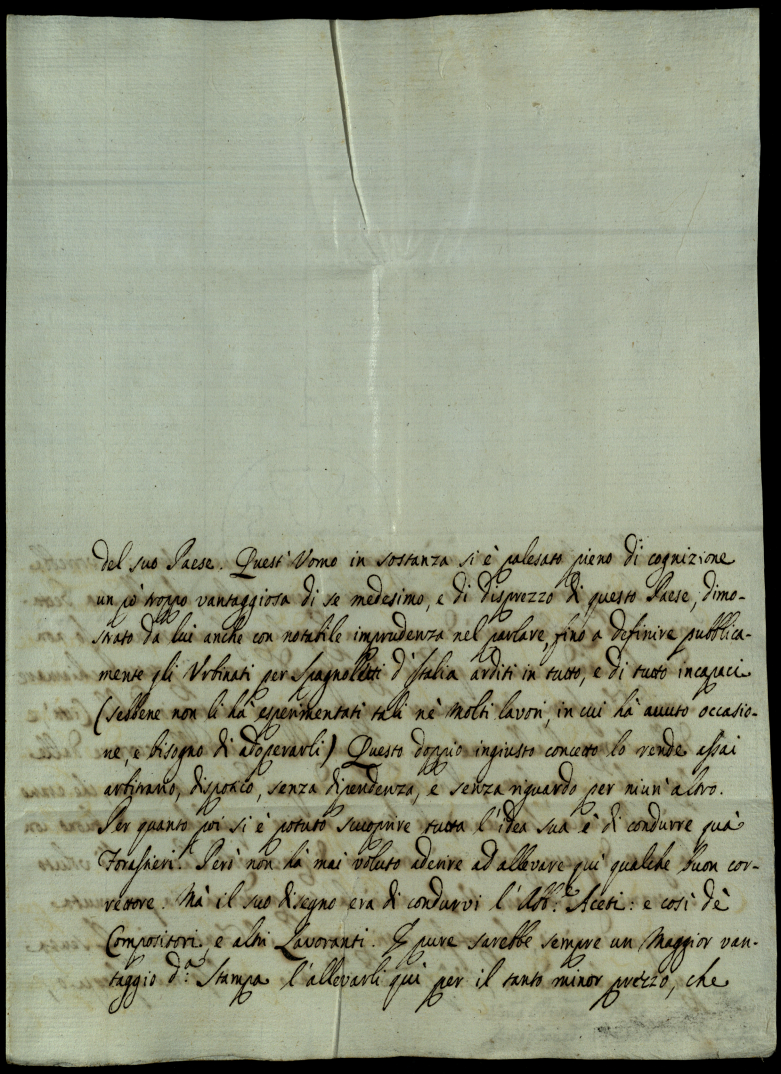 del suo Paese. Quest'Uomo in sostanza si è palesato pieno di cognizione
un pò troppo vantaggiosa di se medesimo, e di disprezzo di questo Paese, dimo-
strato da lui anche con notabile imprudenza nel parlare, fino a definire pubblica-
mente gli Urbinati per Spagnoletti d'Italia arditi in tutto, e di tutto incapaci
(sebbene non li hà esperimentati tali nè molti lavori, in cui hà avuto occasio-
ne, e bisogno di adoperarli) Questo doppio ingiusto concetto lo rende assai
arbitrario, dispotico, senza dipendenza, e senza riguardo per niun'altro.
Per quanto poi si è potuto scuoprire tutta l'idea sua è di condurre quà
Forastieri. Però non hà mai voluto aderire ad allevare quì qualche buon cor-
rettore. Mà il suo disegno era di condurvi l'Abb.e Aceti: e così dè
Compositori, e altri Lavoranti. E pure sarebbe sempre un maggior van-
taggio d.a Stampa l'allevarli quì per il tanto minor prezzo, che